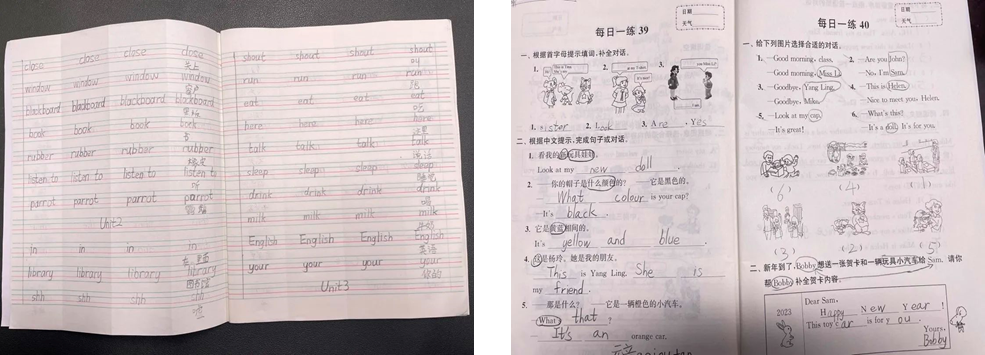 close close close close
关上
window window window window
窗户
blackboard blackboard blackboard blackboard
黑板
book book book book
书
rubber rubber rubber rubber
橡皮
listen to listen to listen to listen to
听
parrot parrot parrot parrot
鹦鹉
Unit2
in in in in
在…里面
library library library library
图书馆
shh shh shh shh
嘘
shout shout shout shout
run run run run
跑
eat eat eat eat
吃
here here here here
这里
talk talk talk talk
说话
sleep sleep sleep sleep
睡觉
drink drink drink drink
喝
milk milk milk milk
牛奶
English English English English
英语
your your your your
你的
Unit3
日期
天气
每日一练 39
一、根据首字母提示填词,补全对话。
1. 2. 3.
1. sister 2. Look 3. Are , Yes
二、根据中文提示,完成句子或对话。
1. 看我的新玩具娃娃。
Look at my new doll .
2. ——你的帽子是什么颜色的? ——它是黑色的。
— What colour is your cap?
—It's black .
3. 它是黄蓝相间的。
It's yellow and blue .
4. 这是杨玲。她是我的朋友。
This is Yang Ling. She is
my friend .
5. ——那是什么? ——它是一辆橙色的小汽车。
— What's that ?
— It's an orange car.
日期
天气
每日一练 40
一、给下列图片选择合适的对话。
1. —Good morning, class.
—Good morning, Miss Li.
2. —Are you John?
—No, I'm Sam.
3. —Goodbye, Yang Ling.
—Goodbye, Mike.
4. —This is Helen.
—Nice to meet you, Helen.
5. —Look at my cap.
—It's great!
6. —What's this?
—It's a doll. It's for you.
(6) (4) (1)
(3) (2) (5)
二、新年到了,Bobby想送一张贺卡和一辆玩具小汽车给Sam。请你
帮Bobby补全贺卡内容。
2023
Dear Sam,
Happy New Year !
This toy car is for you.
Yours,
Bobby